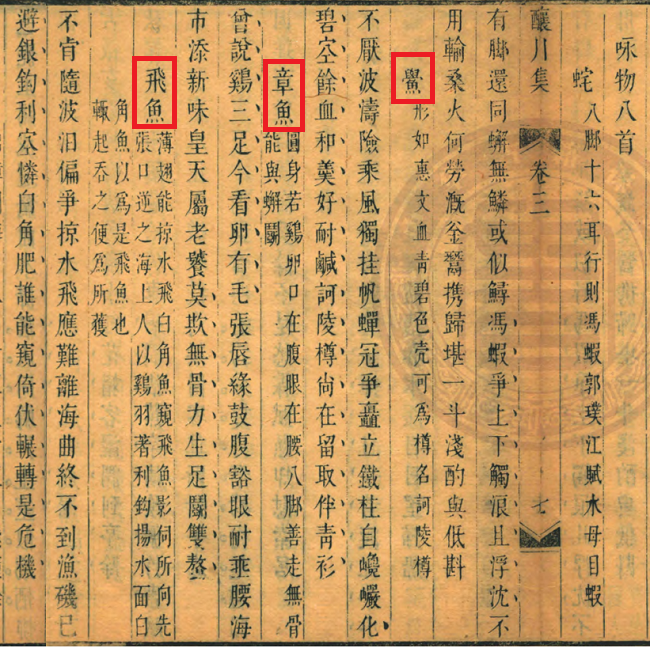 咏物八首
蛇 八脚十六耳行則馮蝦郭璞江賦水母目蝦
釀川集 卷三 七
有脚還同蠏無鱗或似鱘馮蝦爭上下觸浪且浮沈不
用輸桑火何勞溉釜鬵携歸堪一斗淺酌與低斟
鱟 形如惠文血青碧色壳可爲樽名訶陵樽
不厭波濤險乘風獨挂帆蟬冠爭矗立鐵柱自巉巖化
碧空餘血和羹好耐鹹訶陵樽尚在留取伴青衫
章魚 圓身若鷄卵口在腹眼在腰八脚善走無骨
能與蠏鬭
曾說鷄三足今看卵有毛張唇緣鼓腹豁眼耐垂腰海
市添新味皇天屬老饕莫欺無骨力生足鬭雙螯
飛魚 薄翅能掠水飛白角魚窺飛魚影伺所向先
張口逆之海上人以鷄羽著利鈎揚水面白
角魚以爲是飛魚也
輒起吞之便爲所獲
不肯隨波汩偏爭掠水飛應難離海曲終不到漁磯已
避銀鈎利空憐白角肥誰能窺倚伏輾轉是危機